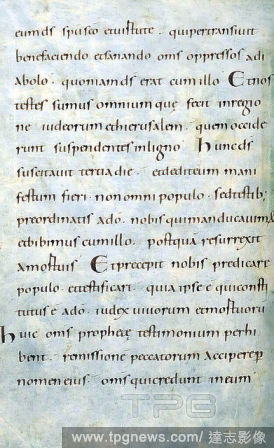 eum ds spu sco et uirtute · qui pertransiuit
benefaciendo et sanando oms oppressos a di
abolo · quoniam ds erat cum illo Et nos
testes sumus omnium que fecit in regio
ne iudeorum et hierusalem · quem occide
runt suspendentes in ligno · hunc ds
suscitauit tertia die · et dedit eum mani
festum fieri · non omni populo · sed testib;
preordinatis a do · nobis qui manducauim;
et bibimus cum illo · postqua resurrexit
a mortuis Et precepit nobis predicare
populo et testificari · quia ipse e qui consti
tutus e a do · iudex uiuorum et mortuoru
huic oms prophete testimonium perhi
bent · remissione peccatorum accipere p
nomen eius · oms qui credunt in eum ·
TPG
www.tpgnews.com/達志影像